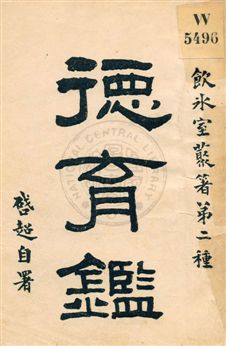 W
5496
飲冰室叢著第二種
德育鑑
啓超自署
NATIONAL CENTRAL LIBRARY